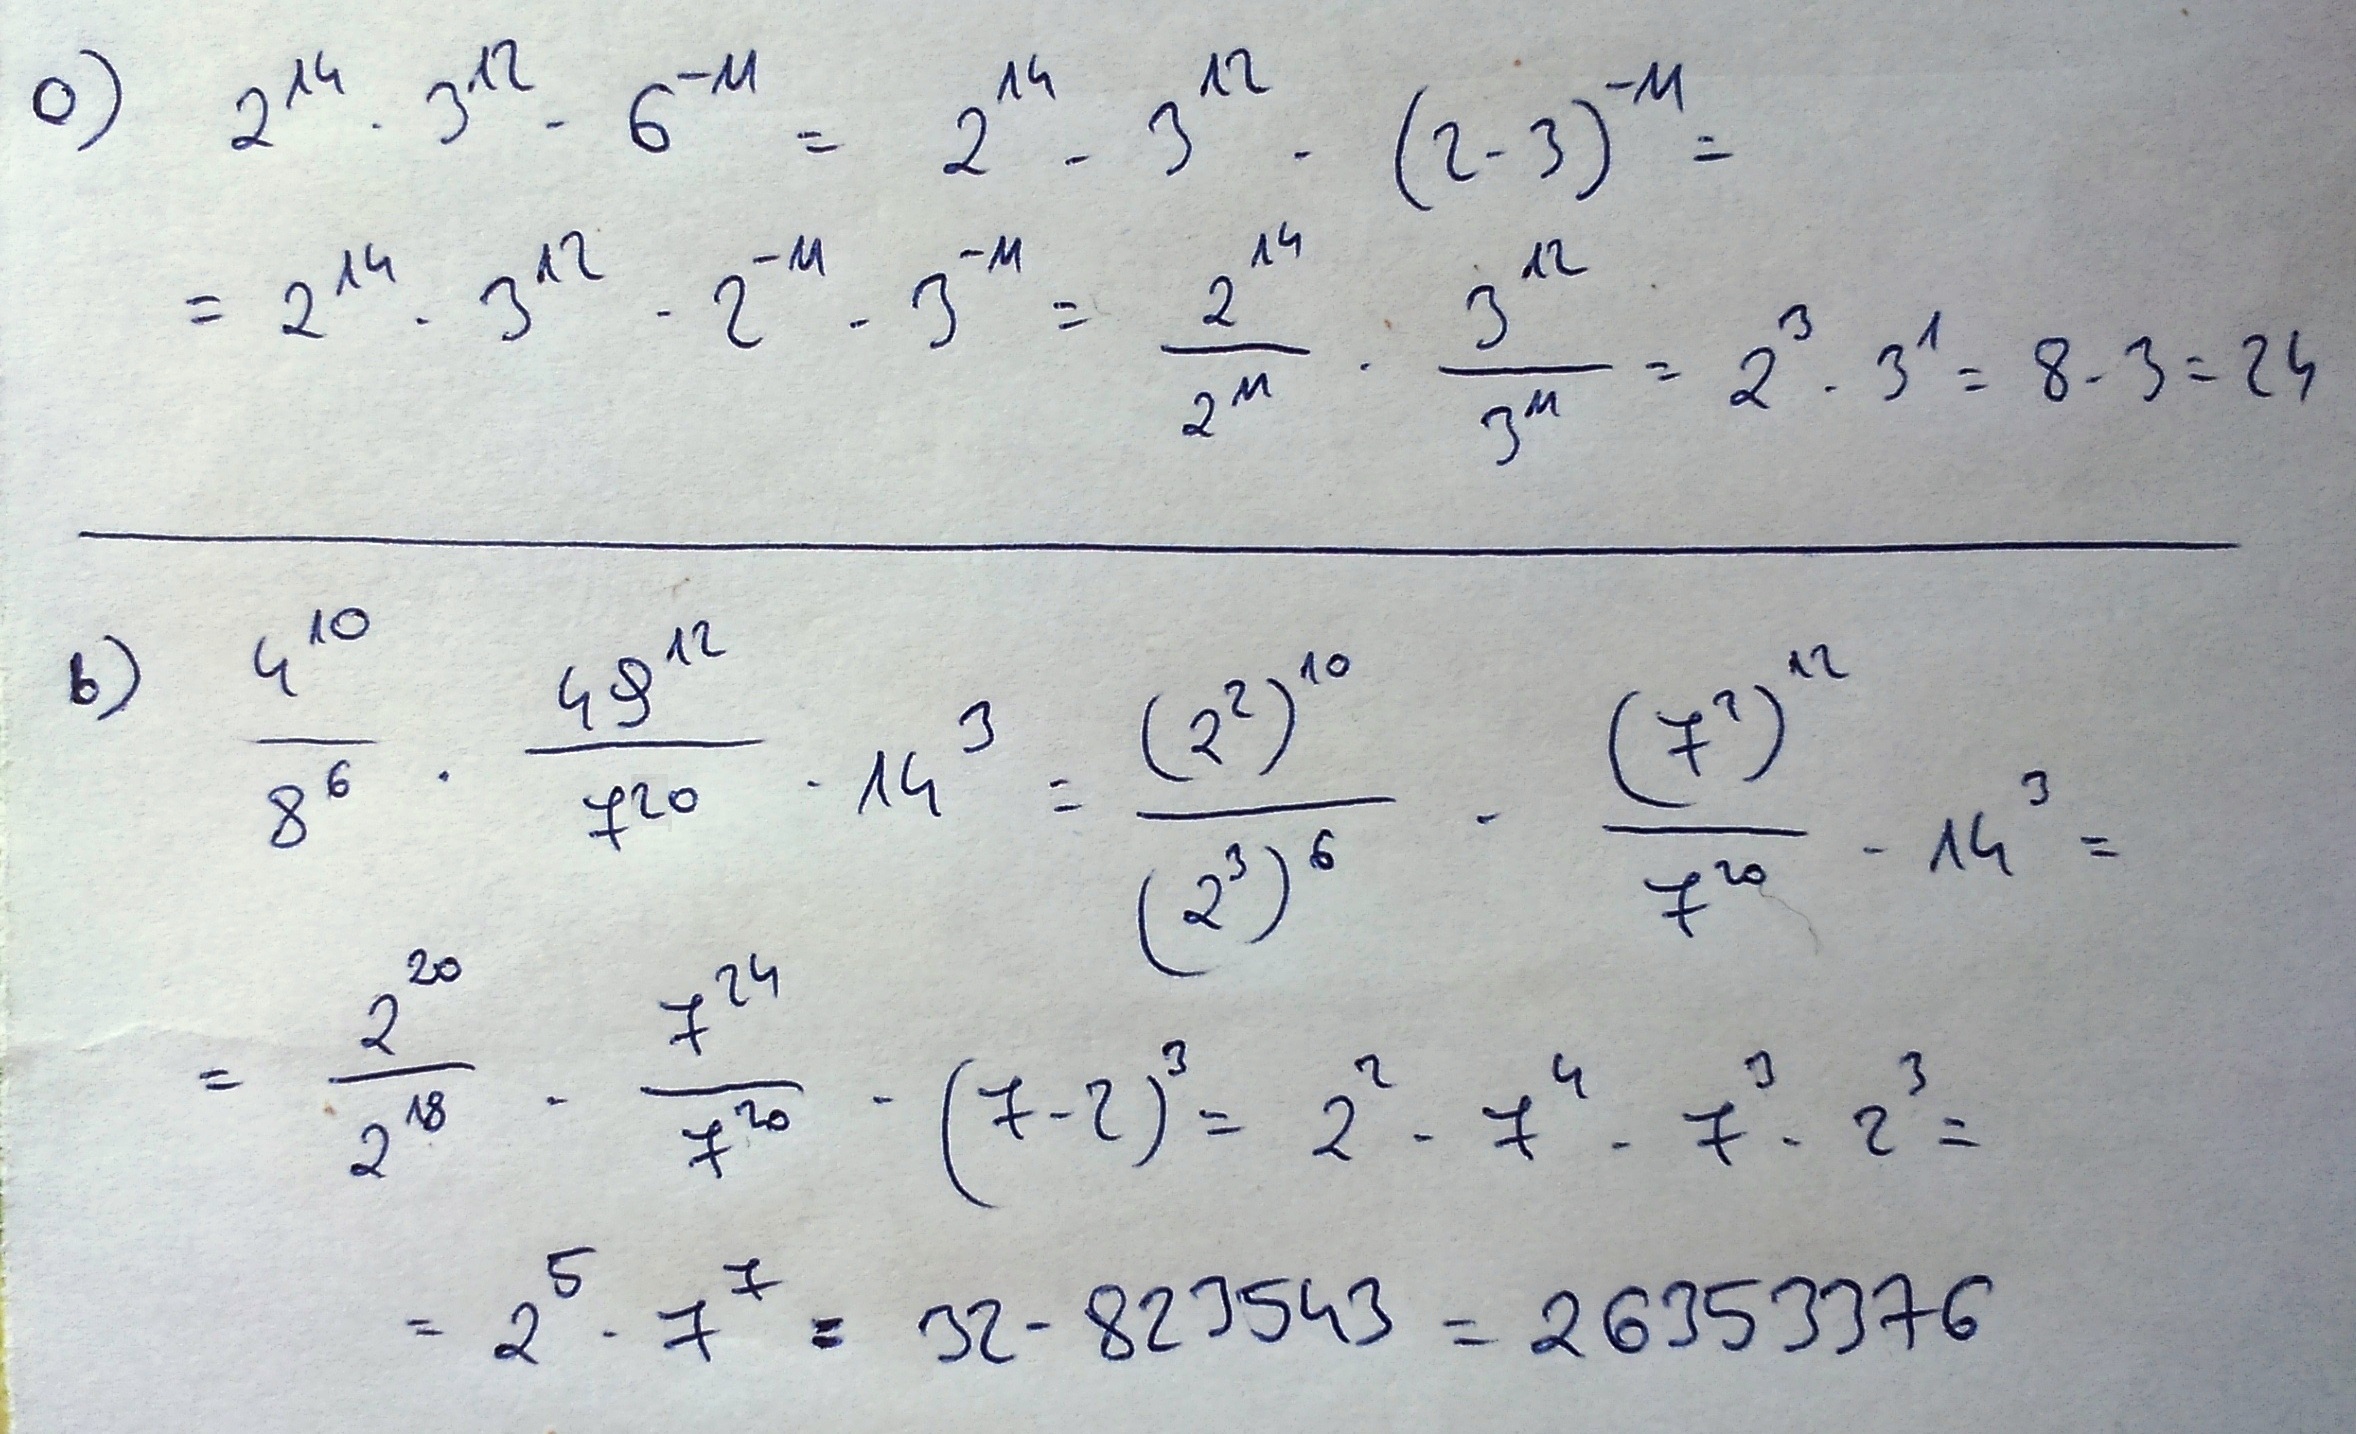 a) 2^14 · 3^12 · 6^-11 = 2^14 · 3^12 · (2·3)^-11 =
= 2^14 · 3^12 · 2^-11 · 3^-11 = 2^14/2^11 · 3^12/3^11 = 2^3 · 3^1 = 8·3 = 24
b) 4^10/8^6 · 49^12/7^20 · 14^3 = (2^2)^10/(2^3)^6 · (7^2)^12/7^20 · 14^3 =
= 2^20/2^18 · 7^24/7^20 · (7·2)^3 = 2^2 · 7^4 · 7^3 · 2^3 =
= 2^5 · 7^7 = 32·823543 = 26353376